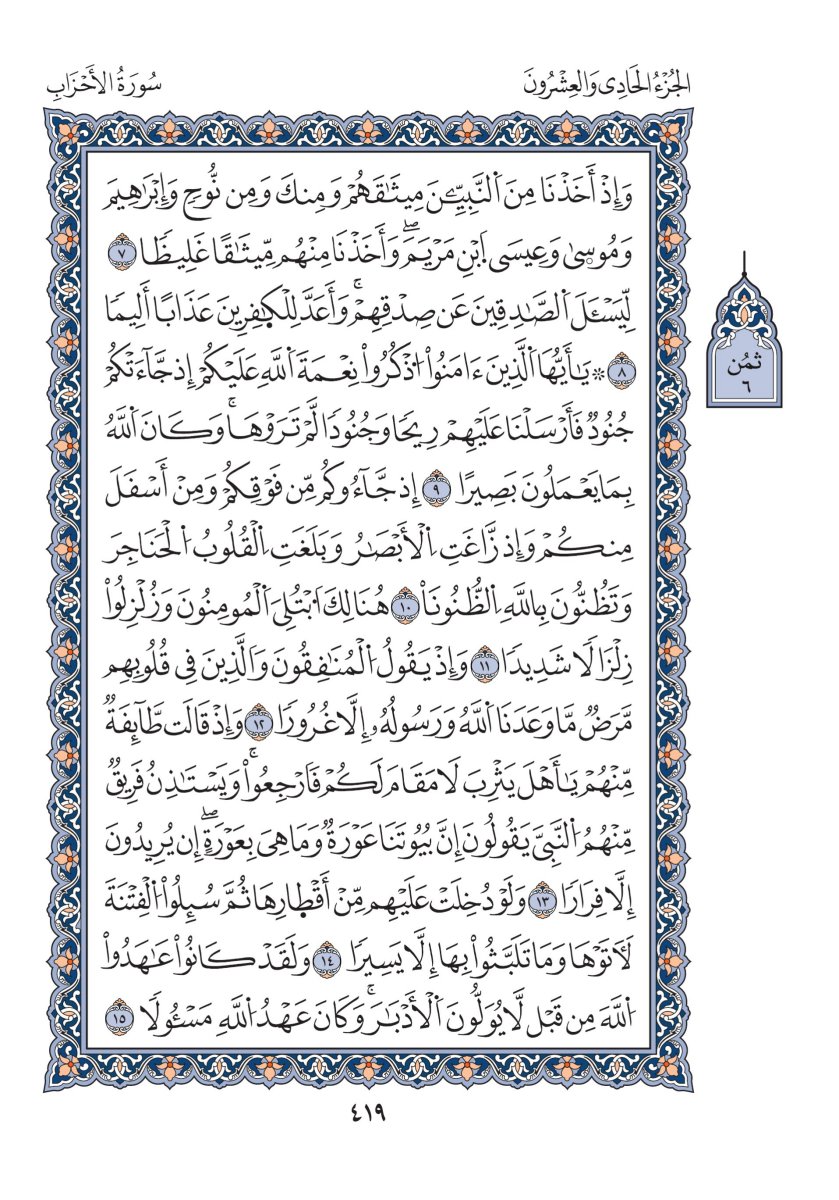 الجُزْءُ الحَادِى وَالعِشْرُونَ
سُورَةُ الأَحْزَابِ
وَإِذْ أَخَذْنَا مِنَ اَلنَّبِيِّـۧنَ مِيثَٰقَهُمْ وَمِنكَ وَمِن نُّوحٍ وَإِبْرَٰهِيمَ
وَمُوسىٰ وَعِيسَى اَبْنِ مَرْيَمَۖ وَأَخَذْنَا مِنْهُم مِّيثَٰقًا غَلِيظًا ٧
لِّيَسْـَٔلَ اَلصَّٰدِقِينَ عَن صِدْقِهِمْۚ وَأَعَدَّ لِلْكٰٜفِرِينَ عَذَابًا أَلِيمًا
٨ ۞ يَٰأَيُّهَا اَلَّذِينَ ءَامَنُواْ اُذْكُرُواْ نِعْمَةَ اَللَّهِ عَلَيْكُمْ إِذ جَّآءَتْكُمْ
جُنُودٌ فَأَرْسَلْنَا عَلَيْهِمْ رِيحًا وَجُنُودًا لَّمْ تَرَوْهَاۚ وَكَانَ اَللَّهُ
بِمَا يَعْمَلُونَ بَصِيرًا ٩ إِذ جَّآءُوكُم مِّن فَوْقِكُمْ وَمِنْ أَسْفَلَ
مِنكُمْ وَإِذ زَّاغَتِ اِلْأَبْصَٰرُ وَبَلَغَتِ اِلْقُلُوبُ اُلْحَنَاجِرَ
وَتَظُنُّونَ بِاللَّهِ اِلظُّنُونَاْ ١٠ هُنَالِكَ اَبْتُلِىَ اَلْمُومِنُونَ وَزُلْزِلُواْ
زِلْزَالًا شَدِيدًا ١١ وَإِذْ يَقُولُ اُلْمُنَٰفِقُونَ وَالَّذِينَ فِى قُلُوبِهِم
مَّرَضٌ مَّا وَعَدَنَا اَللَّهُ وَرَسُولُهُۥ إِلَّا غُرُورًا ١٢ وَإِذْ قَالَت طَّآئِفَةٌ
مِّنْهُمْ يَٰأَهْلَ يَثْرِبَ لَا مَقَامَ لَكُمْ فَارْجِعُواْۚ وَيَسْتَاذِنُ فَرِيقٌ
مِّنْهُمُ اُلنَّبِىَّ يَقُولُونَ إِنَّ بُيُوتَنَا عَوْرَةٌ وَمَا هِىَ بِعَوْرَةٍۖ إِن يُرِيدُونَ
إِلَّا فِرَارًا ١٣ وَلَوْ دُخِلَتْ عَلَيْهِم مِّنْ أَقْطٜارِهَا ثُمَّ سُئِلُواْ اُلْفِتْنَةَ
لَأٓتَوْهَا وَمَا تَلَبَّثُواْ بِهَا إِلَّا يَسِيرًا ١٤ وَلَقَدْ كَانُواْ عَٰهَدُواْ
اُللَّهَ مِن قَبْل لَّا يُوَلُّونَ اَلْأَدْبَٰرَۚ وَكَانَ عَهْدُ اُللَّهِ مَسْـُٔولًا ١٥
ثُمُن
٦
٤١٩